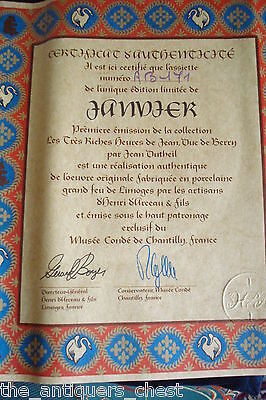 CERTIFICAT D'AUTHENTICITÉ
Il est ici certifié que l'assiette
numéro
de l'unique édition limitée de
JANVIER
Première émission de la collection
Les Très Riches Heures de Jean, Duc de Berry
par Jean Dutheil
est une réalisation authentique
de l'oeuvre originale fabriquée en porcelaine
grand feu de Limoges par les artisans
d'Henri d'Arceau & Fils
et émise sous le haut patronage
exclusif du
Musée Condé de Chantilly, France
Directeur-Général
Henri d'Arceau & Fils
Limoges, France
Conservateur, Musée Condé
Chantilly, France
the_antiquers_chest